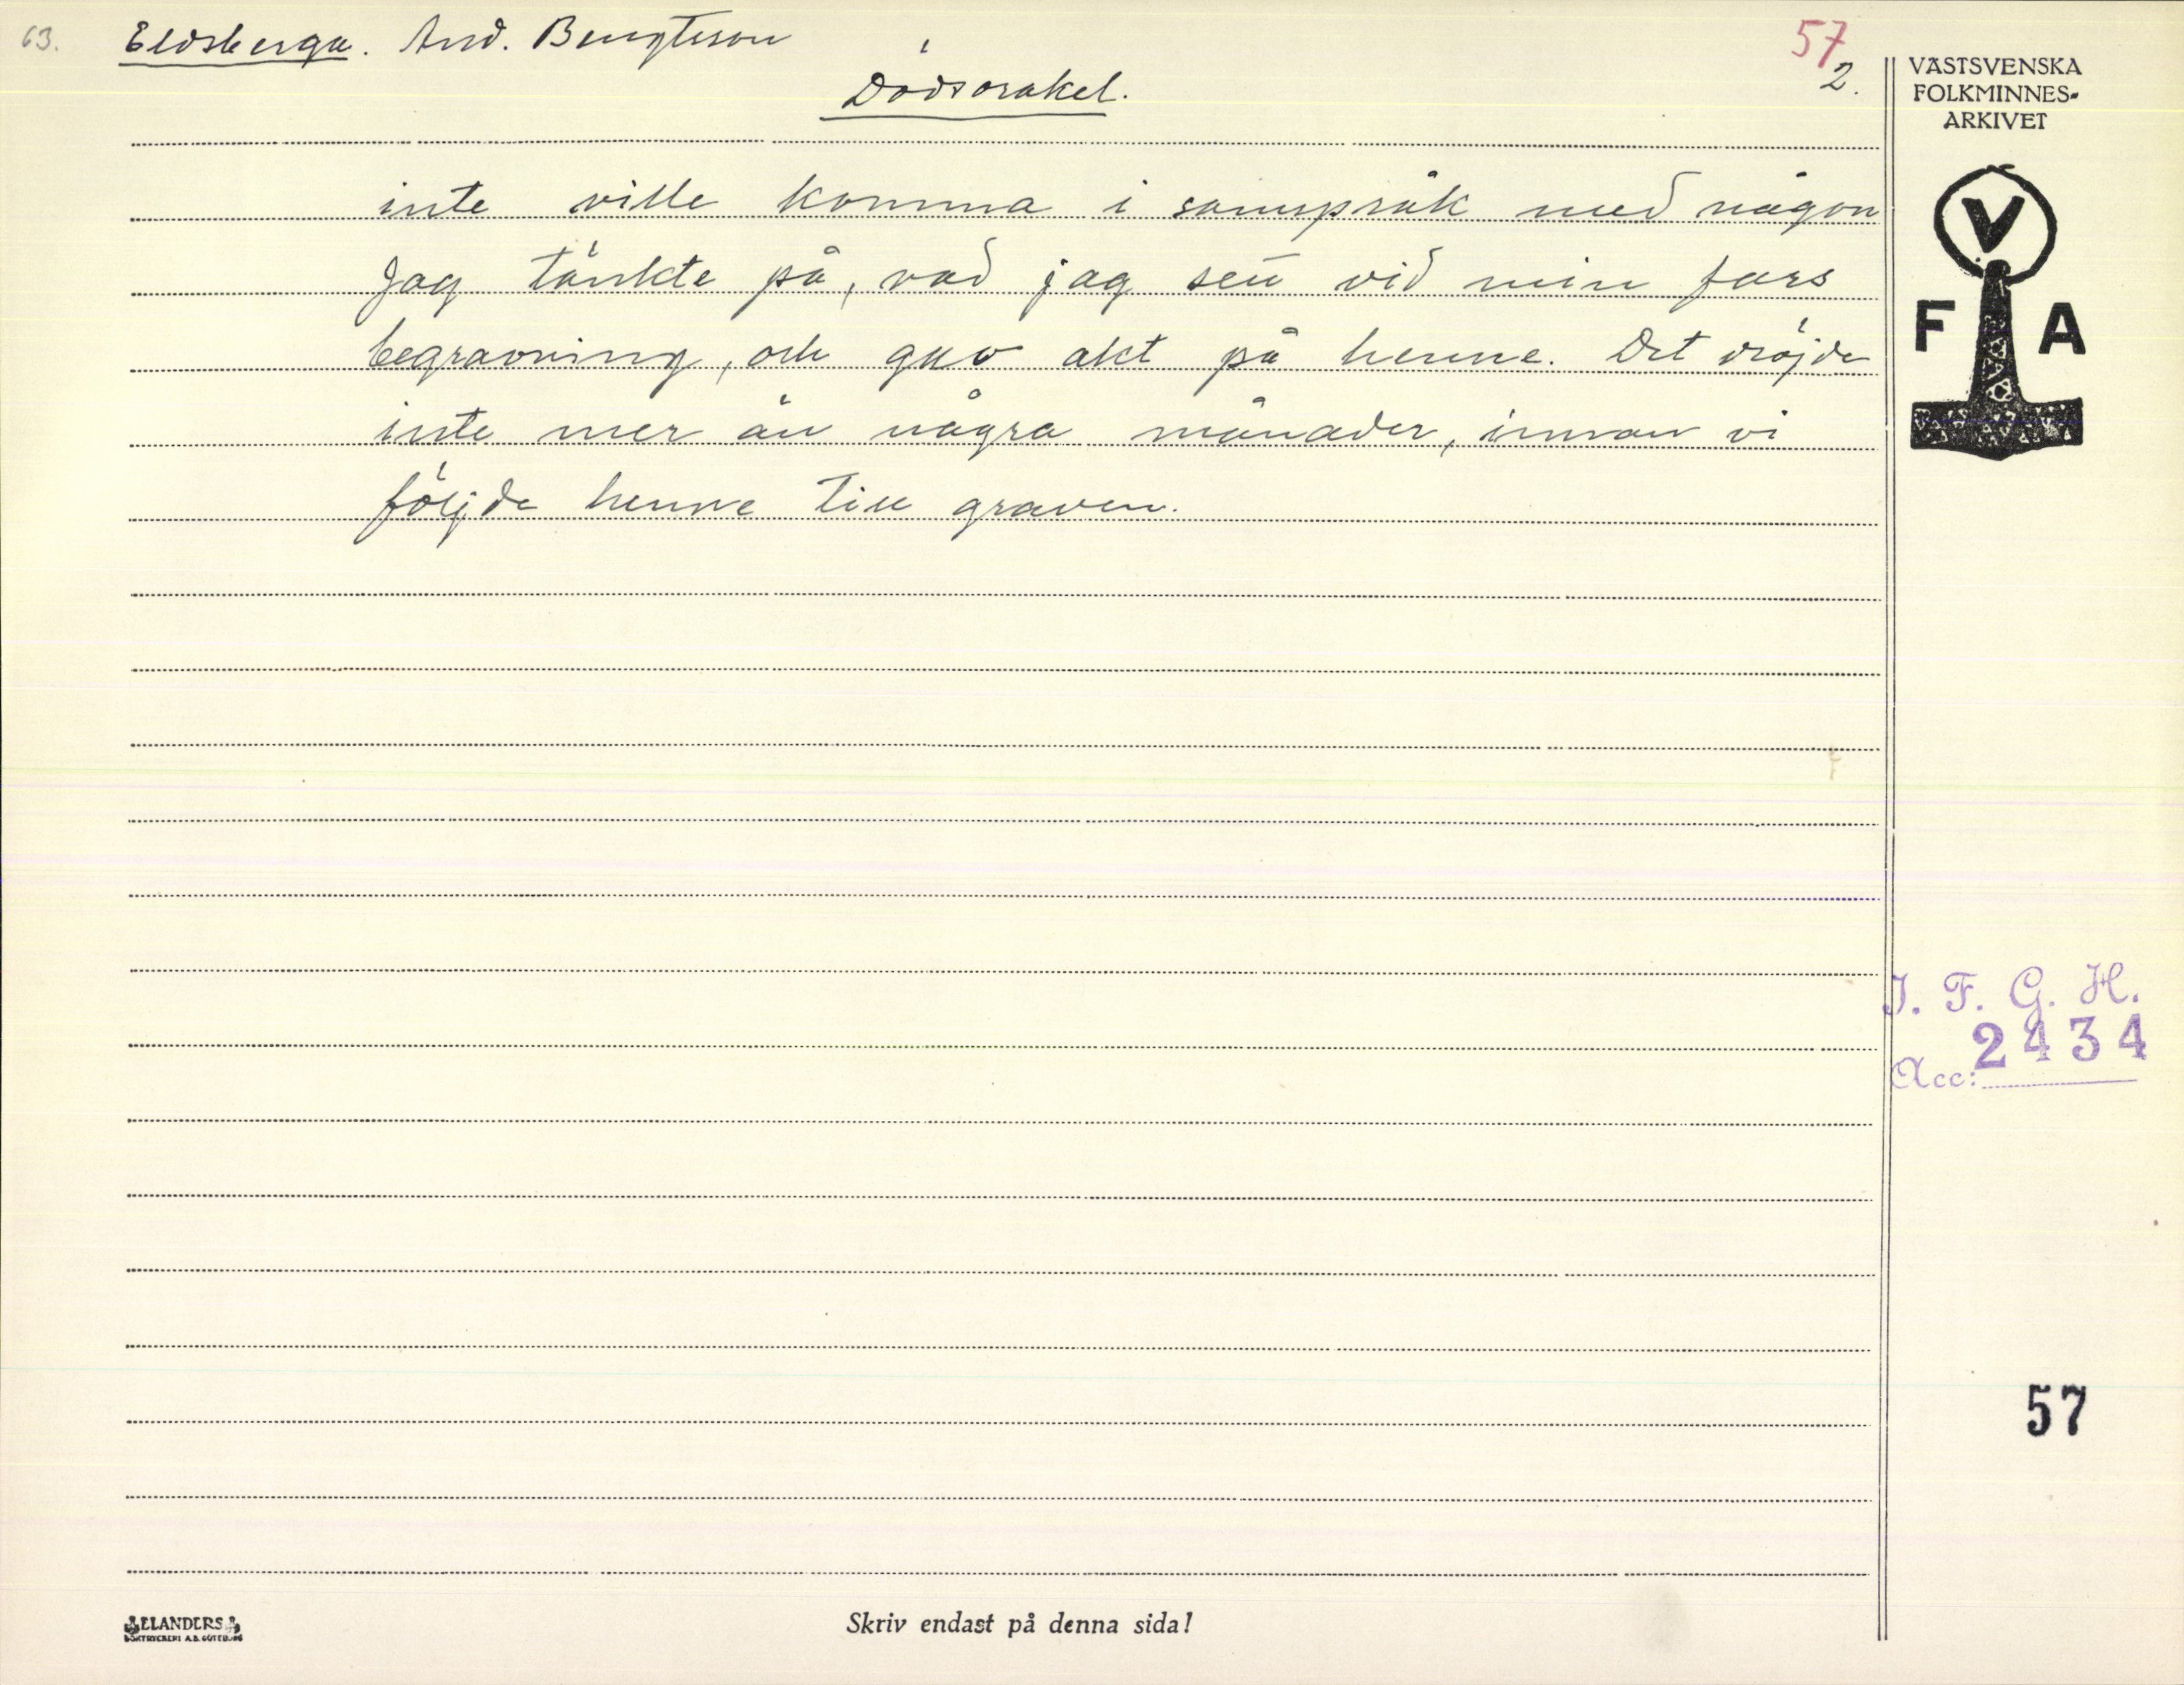 63. Eldsberga. And. Bengtsson
57
2.
Dödsorakel.
VÄSTSVENSKA
FOLKMINNES-
ARKIVET
V
F A
inte ville komma i samspråk med någon
Jag tänkte på, vad jag sett vid min fars
begravning, och gav akt på henne. Det dröjde
inte mer än några månader, innan vi
följde henne till graven.
I. F. G. H.
Acc: 2434
57
ELANDERS
BOKTRYCKERI A.B. GÖTEBORG
Skriv endast på denna sida!